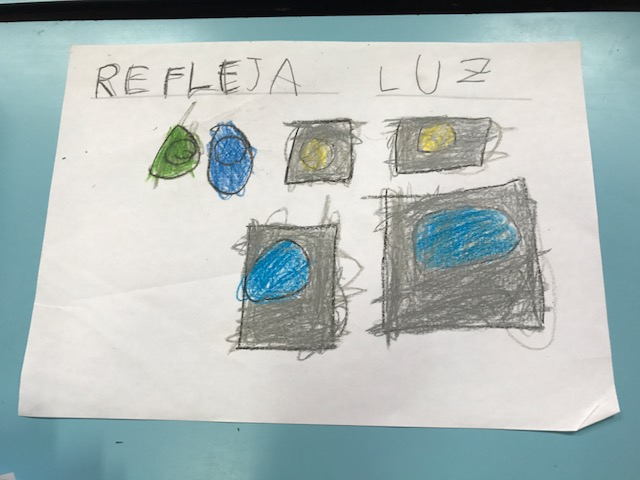 REFLEJA LUZ